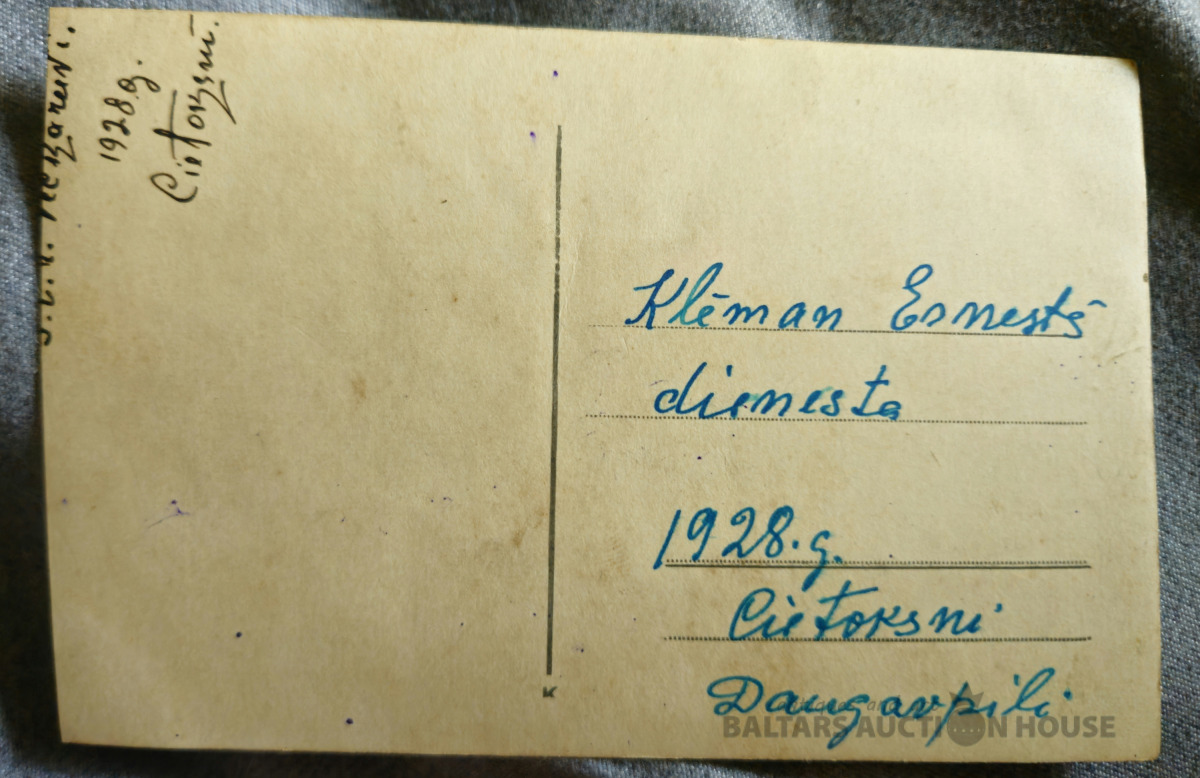 1928.g.
Cietoksni.
Klēman Ernestā
dienesta
1928.g.
Cietoksni
Daugavpili
K
BALTARS AUCTION HOUSE